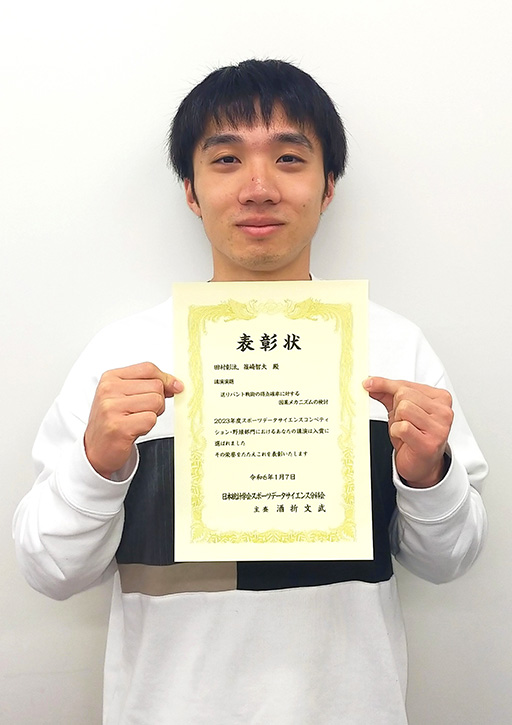 表彰状
田村彰汰, 篠崎智大 殿
講演演題
送りバント戦略の得点確率に対する
因果メカニズムの検討
2023年度スポーツデータサイエンスコンペティ
ション・野球部門におけるあなたの講演は入賞に
選ばれました
その栄誉をたたえこれを表彰いたします
令和6年1月7日
日本統計学会スポーツデータサイエンス分科会
主査 酒折文武